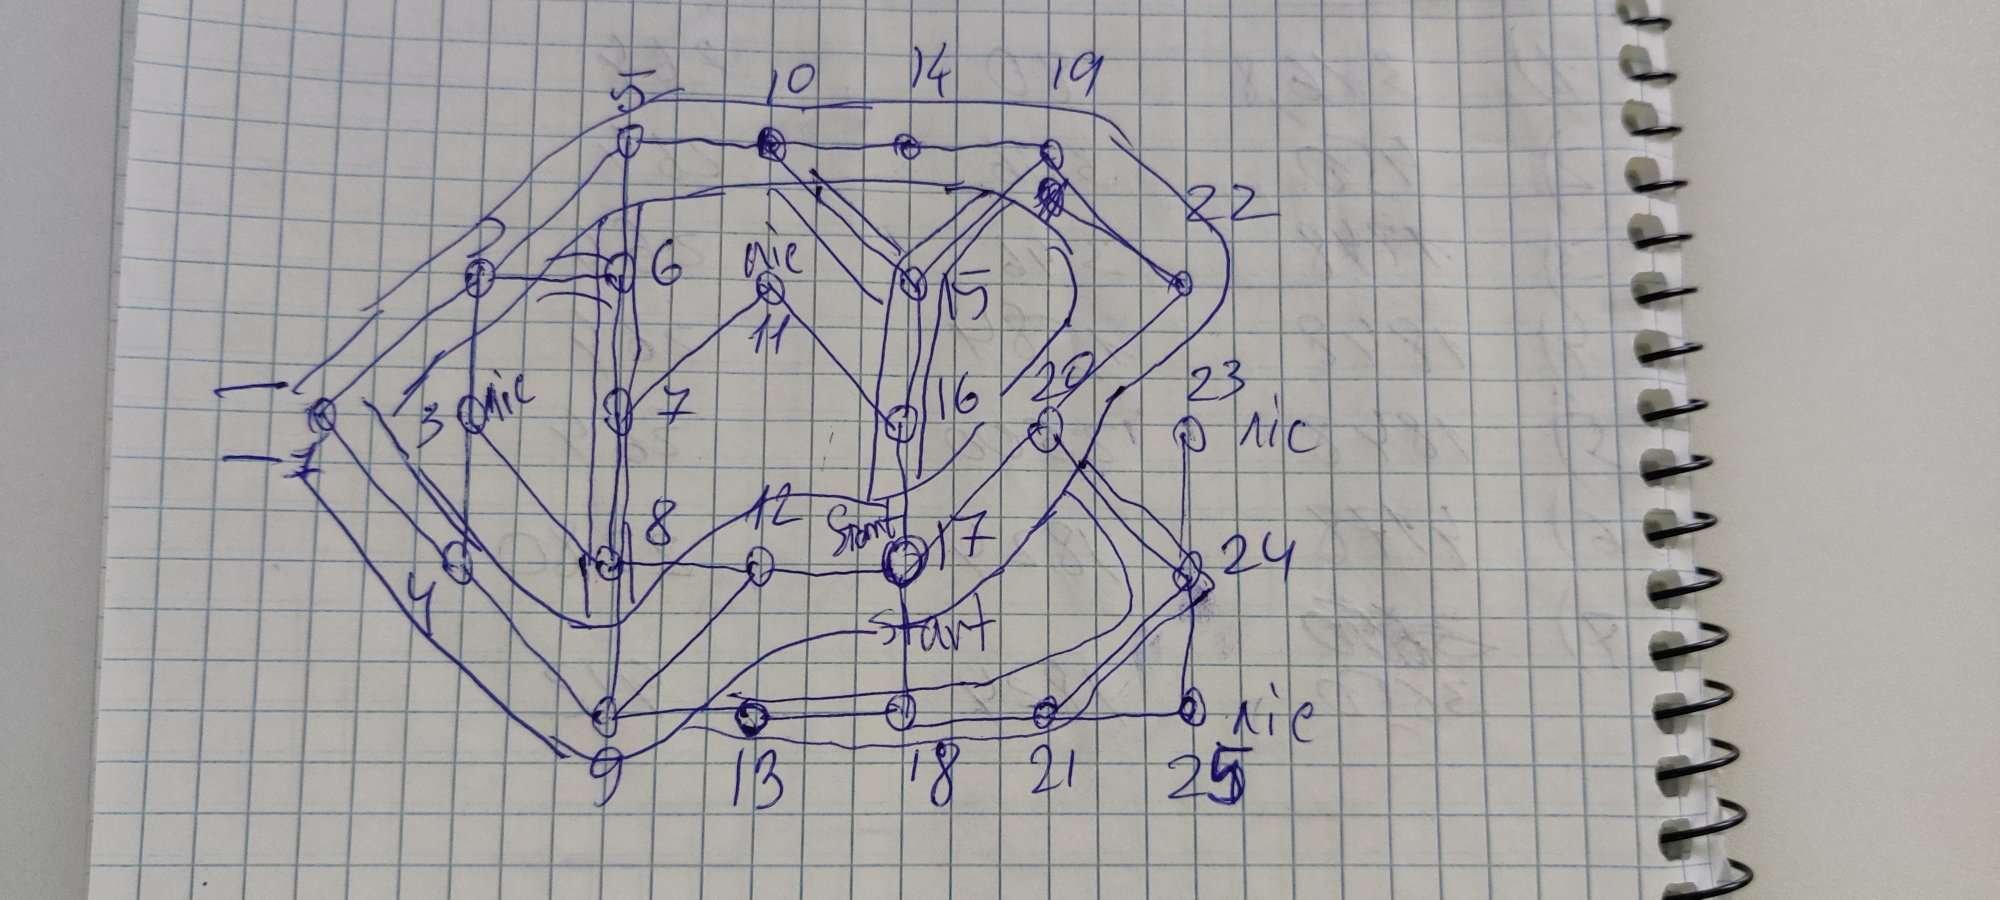 5 10 14 19
2 22
6 nic 15
11
1 3 nic 7 16 20 23 nic
4 8 12 Start 17 24
Start
9 13 18 21 25 nic